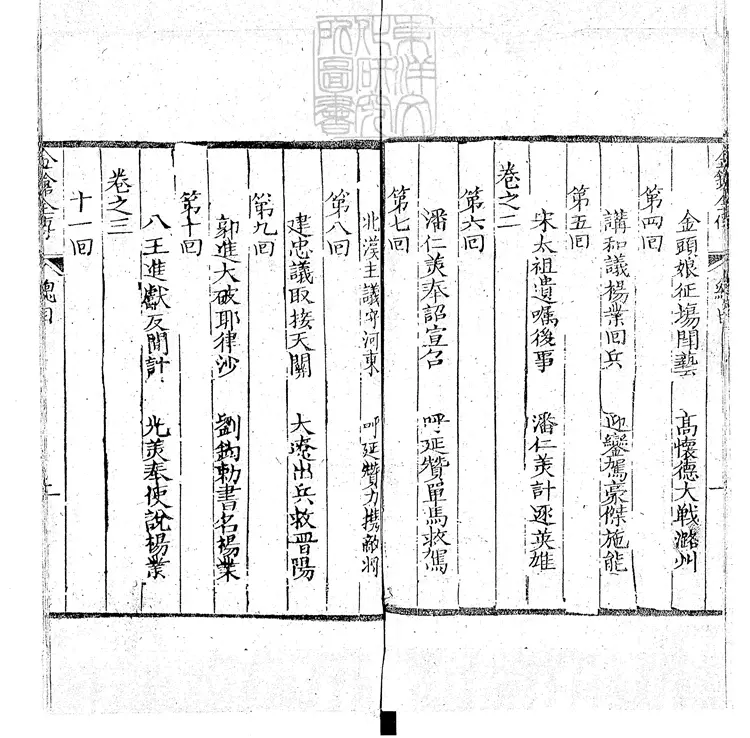 金鎗全傳 總目 一
金頭娘征塲鬪藝 高懷德大戦潞州
第四回
講和議楊業回兵 迎鑾駕豪傑施能
第五回
宋太祖遺囑後事 潘仁美計逐英雄
卷之二
第六回
潘仁美奉詔宣召 呼延贊單馬救駕
第七回
北漢主議守河東 呼延贊力擒敵将
第八回
建忠議取接天關 大遼出兵救晋陽
第九回
郭進大破耶律沙 劉鈞勅書名楊業
第十回
八王進獻反間計 光美奉使說楊業
卷之三
十一回
金鎗全傳 總目 一
東洋文
化研究
所圖書